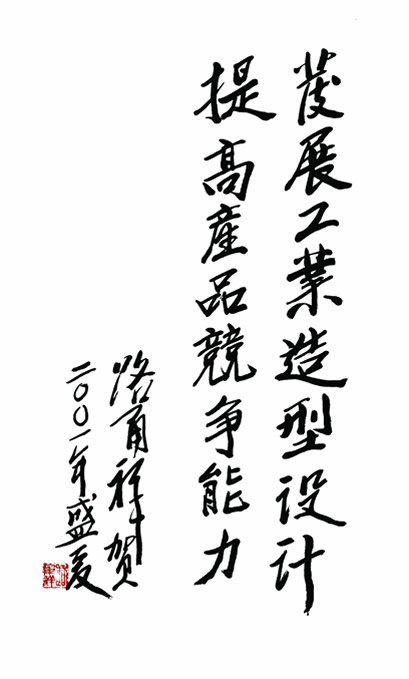 發展工業造型设计
提高產品競争能力
路甬祥贺
二〇〇一年盛夏